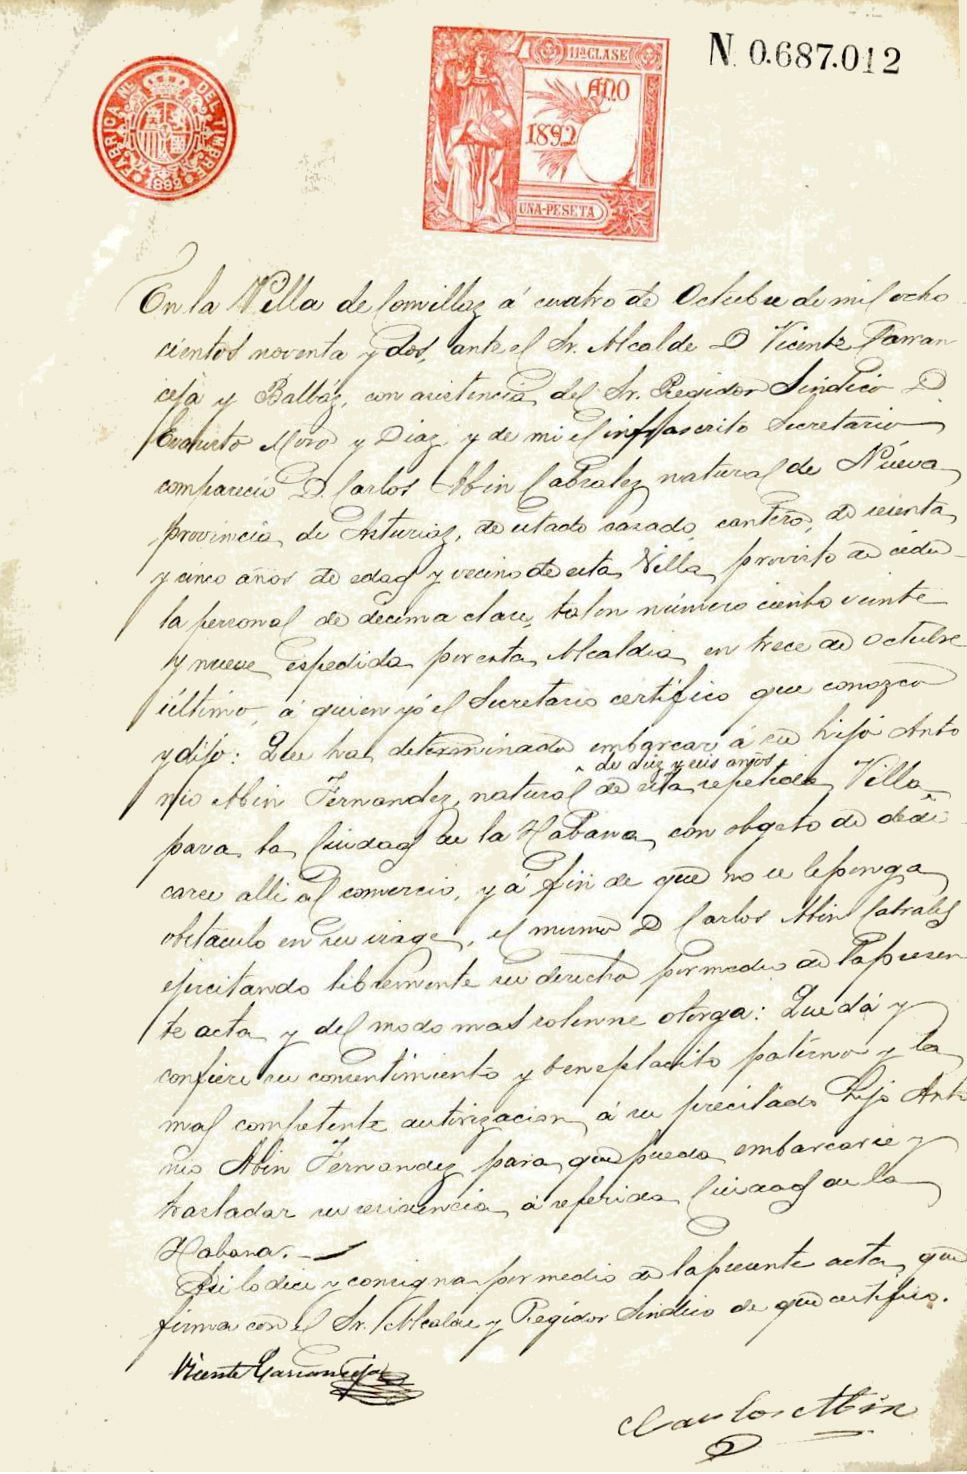 FABRICA NL. DEL TIMBRE
1892
11ª CLASE
AÑO
1892
UNA-PESETA
N. 0.687.012
En la Villa de Comillas á cuatro de Octubre de mil ocho
cientos noventa y dos, ante el Sr. Alcalde D Vicente Garran
ceja y Balbás, con asistencia del Sr. Regidor Sindico D.
Evaristo Moro y Diaz y de mi el infrascrito Secretario
compareció D. Carlos Abin Cabrales natural de Nueva
provincia de Asturias, de estado casado, cantero, de sesenta
y cinco años de edad y vecino de esta Villa, provisto de cédu-
la personal de decima clase, talon número ciento veinte
y nueve espedida por esta Alcaldia en trece de Octubre
último, á quien yó el Secretario certifico que conozco
y dijo: Que ha determinado embarcar á su hijo Anto
de diez y seis años
nio Abin Fernandez, natural de esta repetida Villa
para la Ciudad de la Habana, con objeto de dedi
carse alli al comercio, y á fin de que no se le ponga
obstáculo en su viage, el mismo D Carlos Abin Cabrales
ejercitando libremente su derecho por medio de la presen
te acta y del modo mas solemne otorga: Que dá y
confiere su consentimiento y beneplacito paterno y la
mas competente autorizacion á su precitado hijo Anto
nio Abin Fernandez para que pueda embarcarse y
trasladar su residencia á referida Ciudad de la
Habana.
Asi lo dice y consigna por medio de la presente acta, que
firma con el Sr. Alcalde y Regidor Sindico de que certifico.
Vicente Garranceja
Carlos Abin